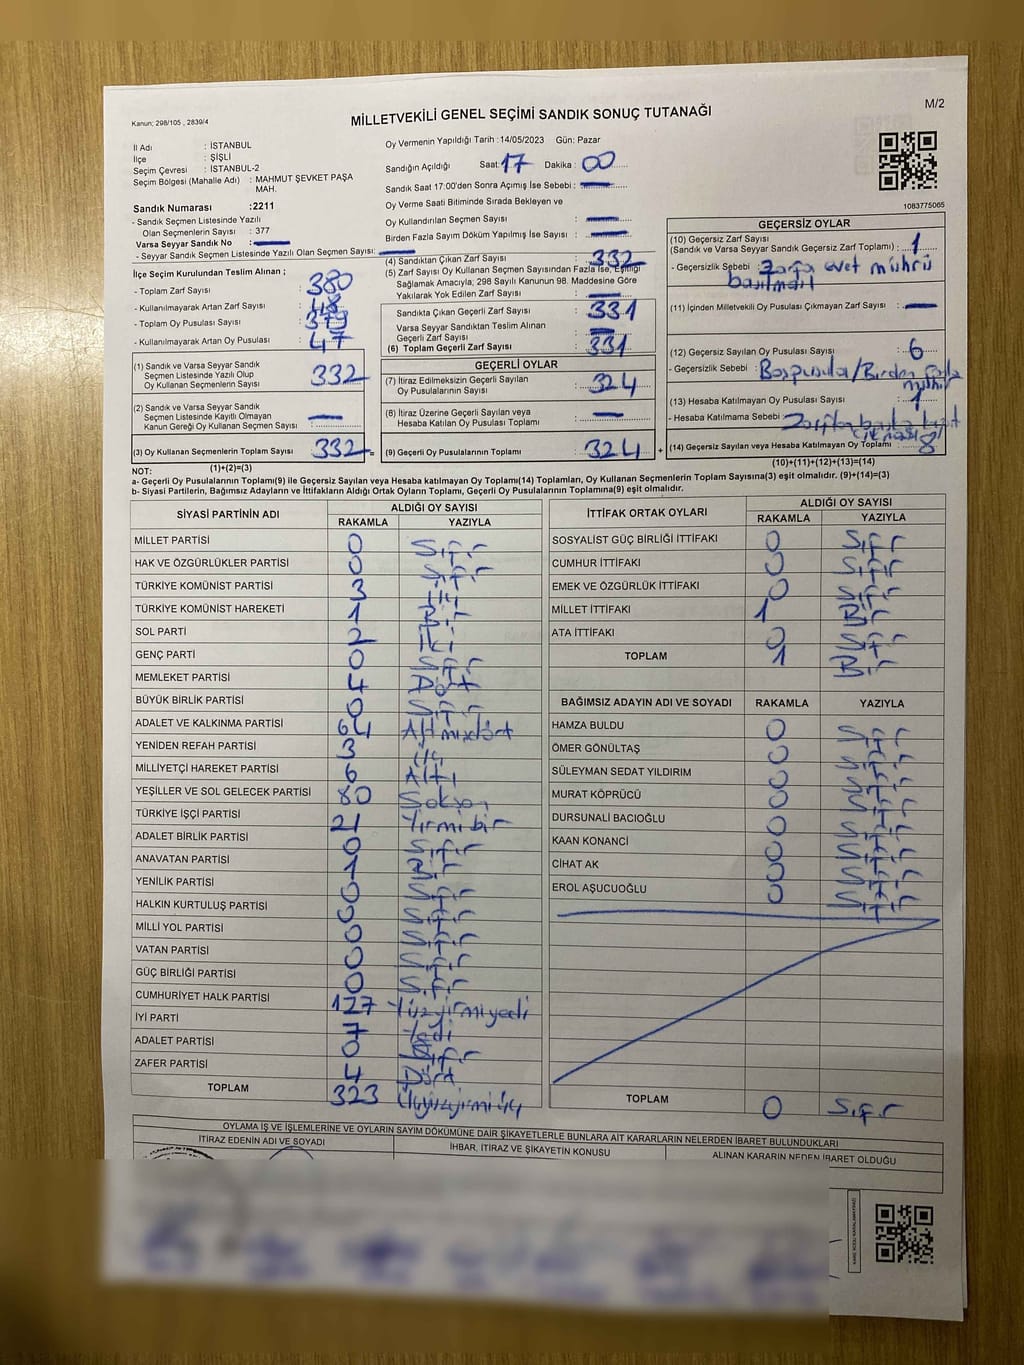 M/2
Kanun; 298/105 , 2839/4
MİLLETVEKİLİ GENEL SEÇİMİ SANDIK SONUÇ TUTANAĞI
İl Adı : İSTANBUL
İlçe : ŞİŞLİ
Seçim Çevresi : İSTANBUL-2
Seçim Bölgesi (Mahalle Adı) : MAHMUT ŞEVKET PAŞA
MAH.
Sandık Numarası :2211
- Sandık Seçmen Listesinde Yazılı
Olan Seçmenlerin Sayısı : 377
Varsa Seyyar Sandık No :
- Seyyar Sandık Seçmen Listesinde Yazılı Olan Seçmen Sayısı:
İlçe Seçim Kurulundan Teslim Alınan ;
- Toplam Zarf Sayısı : 380
- Kullanılmayarak Artan Zarf Sayısı : 48
- Toplam Oy Pusulası Sayısı : 379
- Kullanılmayarak Artan Oy Pusulası : 47
(1) Sandık ve Varsa Seyyar Sandık
Seçmen Listesinde Yazılı Olup
Oy Kullanan Seçmenlerin Sayısı : 332
(2) Sandık ve Varsa Seyyar Sandık
Seçmen Listesinde Kayıtlı Olmayan
Kanun Gereği Oy Kullanan Seçmen Sayısı :
(3) Oy Kullanan Seçmenlerin Toplam Sayısı : 332 =
Oy Vermenin Yapıldığı Tarih : 14/05/2023 Gün: Pazar
Sandığın Açıldığı Saat: 17 Dakika : 00
Sandık Saat 17:00'den Sonra Açımış İse Sebebi :
Oy Verme Saati Bitiminde Sırada Bekleyen ve
Oy Kullandırılan Seçmen Sayısı :
Birden Fazla Sayım Döküm Yapılmış İse Sayısı :
(4) Sandıktan Çıkan Zarf Sayısı : 332
(5) Zarf Sayısı Oy Kullanan Seçmen Sayısından Fazla İse, Eşitliği
Sağlamak Amacıyla; 298 Sayılı Kanunun 98. Maddesine Göre
Yakılarak Yok Edilen Zarf Sayısı :
Sandıkta Çıkan Geçerli Zarf Sayısı : 331
Varsa Seyyar Sandıktan Teslim Alınan
Geçerli Zarf Sayısı :
(6) Toplam Geçerli Zarf Sayısı : 331
GEÇERLİ OYLAR
(7) İtiraz Edilmeksizin Geçerli Sayılan
Oy Pusulalarının Sayısı : 324
(8) İtiraz Üzerine Geçerli Sayılan veya
Hesaba Katılan Oy Pusulası Toplamı :
(9) Geçerli Oy Pusulalarının Toplamı : 324 +
1083775065
GEÇERSİZ OYLAR
(10) Geçersiz Zarf Sayısı
(Sandık ve Varsa Seyyar Sandık Geçersiz Zarf Toplamı) : 1
- Geçersizlik Sebebi : Zarfa evet mührü
basılması
(11) İçinden Milletvekili Oy Pusulası Çıkmayan Zarf Sayısı :
(12) Geçersiz Sayılan Oy Pusulası Sayısı : 6
- Geçersizlik Sebebi : Boş pusula/Birden fazla
mühür
(13) Hesaba Katılmayan Oy Pusulası Sayısı : 1
- Hesaba Katılmama Sebebi : Zarftan başka kağıt
çıkması
(14) Geçersiz Sayılan veya Hesaba Katılmayan Oy Toplamı : 8
NOT: (1)+(2)=(3) (10)+(11)+(12)+(13)=(14)
a- Geçerli Oy Pusulasının Toplamı(9) ile Geçersiz Sayılan veya Hesaba katılmayan Oy Toplamı(14) Toplamları, Oy Kullanan Seçmenlerin Toplam Sayısına(3) eşit olmalıdır. (9)+(14)=(3)
b- Siyasi Partilerin, Bağımsız Adayların ve İttifakların Aldığı Ortak Oyların Toplamı, Geçerli Oy Pusulalarının Toplamına(9) eşit olmalıdır.
SİYASİ PARTİNİN ADI ALDIĞI OY SAYISI
RAKAMLA YAZIYLA
MİLLET PARTİSİ 0 Sıfır
HAK VE ÖZGÜRLÜKLER PARTİSİ 0 Sıfır
TÜRKİYE KOMÜNİST PARTİSİ 3 Üç
TÜRKİYE KOMÜNİST HAREKETİ 1 Bir
SOL PARTİ 2 İki
GENÇ PARTİ 0 Sıfır
MEMLEKET PARTİSİ 4 Dört
BÜYÜK BİRLİK PARTİSİ 0 Sıfır
ADALET VE KALKINMA PARTİSİ 64 Altmışdört
YENİDEN REFAH PARTİSİ 3 Üç
MİLLİYETÇİ HAREKET PARTİSİ 6 Altı
YEŞİLLER VE SOL GELECEK PARTİSİ 80 Seksen
TÜRKİYE İŞÇİ PARTİSİ 21 Yirmibir
ADALET BİRLİK PARTİSİ 0 Sıfır
ANAVATAN PARTİSİ 1 Bir
YENİLİK PARTİSİ 0 Sıfır
HALKIN KURTULUŞ PARTİSİ 0 Sıfır
MİLLİ YOL PARTİSİ 0 Sıfır
VATAN PARTİSİ 0 Sıfır
GÜÇ BİRLİĞİ PARTİSİ 0 Sıfır
CUMHURİYET HALK PARTİSİ 127 Yüzyirmiyedi
İYİ PARTİ 7 Yedi
ADALET PARTİSİ 0 Sıfır
ZAFER PARTİSİ 4 Dört
TOPLAM 323 Üçyüzyirmiüç
İTTİFAK ORTAK OYLARI ALDIĞI OY SAYISI
RAKAMLA YAZIYLA
SOSYALİST GÜÇ BİRLİĞİ İTTİFAKI 0 Sıfır
CUMHUR İTTİFAKI 0 Sıfır
EMEK VE ÖZGÜRLÜK İTTİFAKI 0 Sıfır
MİLLET İTTİFAKI 1 Bir
ATA İTTİFAKI 0 Sıfır
TOPLAM 1 Bir
BAĞIMSIZ ADAYIN ADI VE SOYADI RAKAMLA YAZIYLA
HAMZA BULDU 0 Sıfır
ÖMER GÖNÜLTAŞ 0 Sıfır
SÜLEYMAN SEDAT YILDIRIM 0 Sıfır
MURAT KÖPRÜCÜ 0 Sıfır
DURSUNALİ BACIOĞLU 0 Sıfır
KAAN KONANCİ 0 Sıfır
CİHAT AK 0 Sıfır
EROL AŞUCUOĞLU 0 Sıfır
TOPLAM 0 Sıfır
OYLAMA İŞ VE İŞLEMLERİNE VE OYLARIN SAYIM DÖKÜMÜNE DAİR ŞİKAYETLERLE BUNLARA AİT KARARLARIN NELERDEN İBARET BULUNDUKLARI
İTİRAZ EDENİN ADI VE SOYADI İHBAR, İTİRAZ VE ŞİKAYETİN KONUSU ALINAN KARARIN NEDEN İBARET OLDUĞU